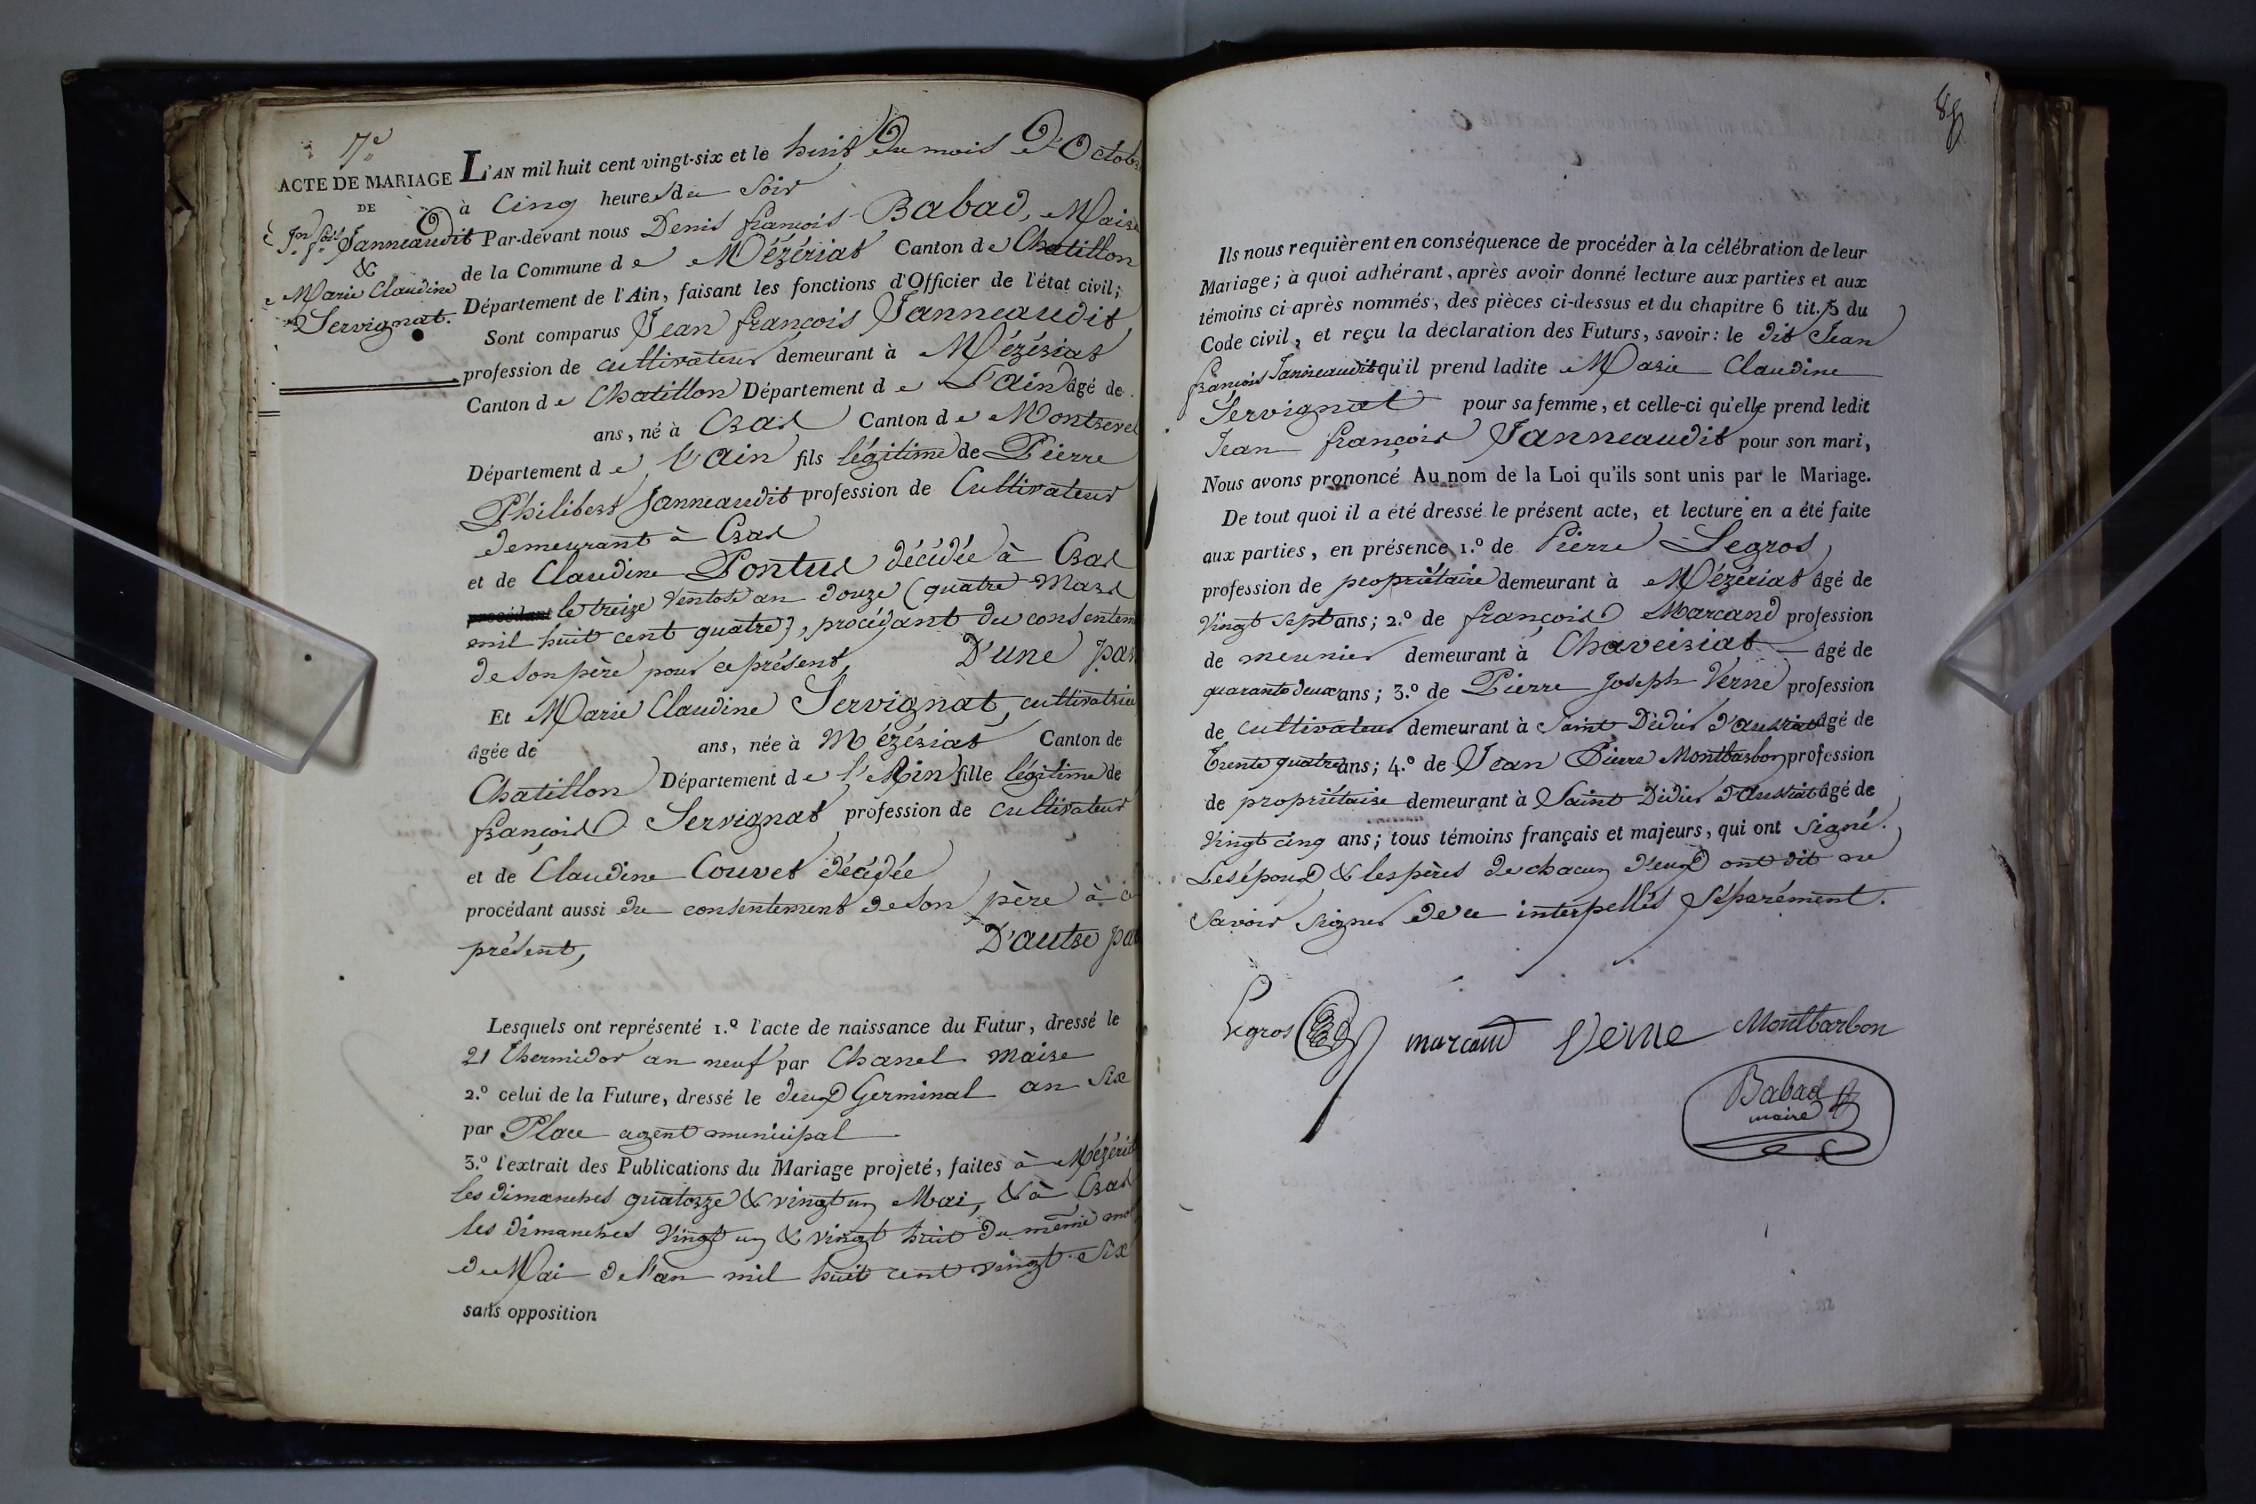 7e
ACTE DE MARIAGE
DE
Jn fois Janneaudit
&
Marie Claudine
Servignat.
L'AN mil huit cent vingt-six et le huit du mois d'Octobre
à Cinq heures du Soir
Par-devant nous Denis françois Babad, Maire
de la Commune de Mézériat Canton de Chatillon
Département de l'Ain, faisant les fonctions d'Officier de l'état civil;
Sont comparus Jean françois Janneaudit
profession de cultivateur demeurant à Mézériat
Canton de Chatillon Département de L'ain âgé de
ans, né à Cras Canton de Montrevel
Département de l'ain fils légitime de Pierre
Philibert Janneaudit profession de Cultivateur
demeurant à Cras
et de Claudine Pontus décédée à Cras
procédant le treize Ventose an douze (quatre Mars
mil huit cent quatre), procédant du consentem
de son père pour ce présent, D'une par
Et Marie Claudine Servignat, cultivatrice
âgée de ans, née à Mézériat Canton de
Chatillon Département de l'Ain fille légitime de
françois Servignat profession de cultivateur
et de Claudine Couvet décédée
procédant aussi du consentement de son père à ce
présent, D'autre pa
Lesquels ont représenté 1.º l'acte de naissance du Futur, dressé le
21 thermidor an neuf par Chanel maire
2.º celui de la Future, dressé le deux Germinal an Six
par Place agent municipal
3.º l'extrait des Publications du Mariage projeté, faites à Mézériat
les dimanches quatorze & vingt un Mai, & à Cras
les dimanches vingt un & vingt huit du même mo
de Mai de l'an mil huit cent vingt-Six
sans opposition
Ils nous requièrent en conséquence de procéder à la célébration de leur
Mariage; à quoi adhérant, après avoir donné lecture aux parties et aux
témoins ci-après nommés, des pièces ci-dessus et du chapitre 6 tit. 5 du
Code civil, et reçu la déclaration des Futurs, savoir: le dit Jean
françois Janneaudit qu'il prend ladite Marie Claudine
Servignat pour sa femme, et celle-ci qu'elle prend ledit
Jean françois Janneaudit pour son mari,
Nous avons prononcé Au nom de la Loi qu'ils sont unis par le Mariage.
De tout quoi il a été dressé le présent acte, et lecture en a été faite
aux parties, en présence 1.º de Pierre Legros,
profession de propriétaire demeurant à Mézériat âgé de
Vingt sept ans; 2.º de françois Marcand profession
de meunier demeurant à Chaveiriat âgé de
quarante deux ans; 3.º de Pierre Joseph Verne profession
de cultivateur demeurant à Saint Didier d'aussiat âgé de
Trente quatre ans; 4.º de Jean Pierre Montbarbon profession
de propriétaire demeurant à Saint Didier d'Aussiat âgé de
Vingt cinq ans; tous témoins français et majeurs, qui ont signé.
Les époux & les pères de chacun d'eux ont dit ne
savoir signer de ce interpellés Séparément.
Legros marcand Verne Montbarbon
Babad
maire